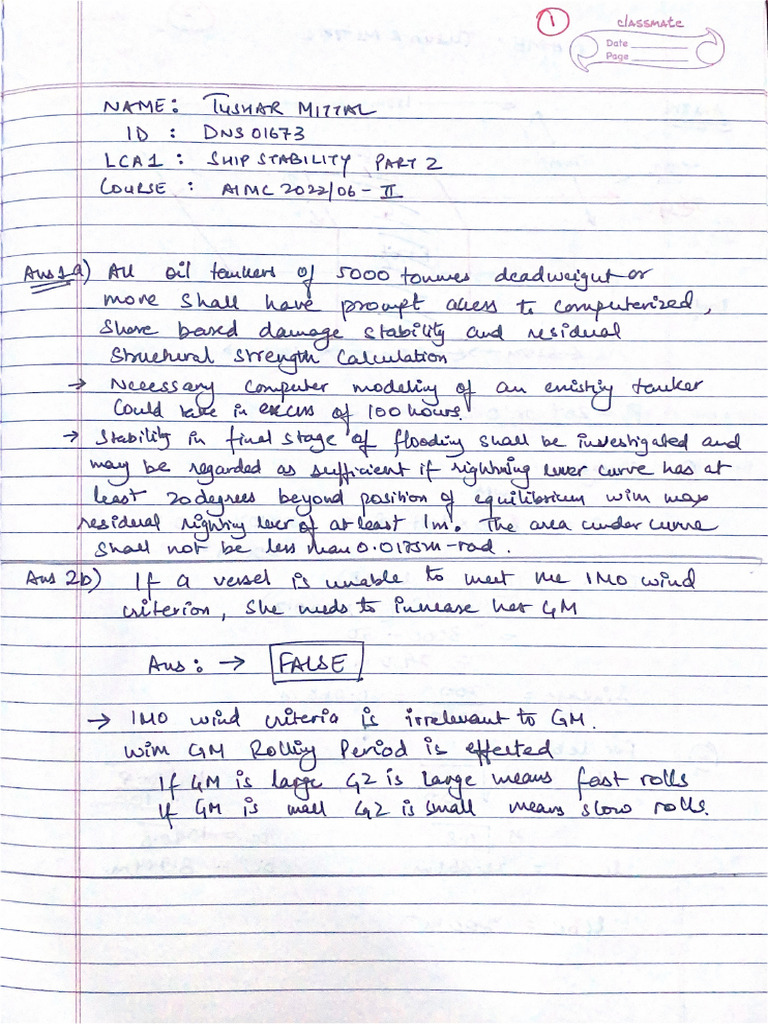 1
classmate
Date
Page
NAME: TUSHAR MITTAL
ID : DNS01673
LCA1 : SHIP STABILITY PART 2
COURSE : AIMC 2022/06-II
Ans 1a) All oil tankers of 5000 tonnes deadweight or
more shall have prompt access to computerized,
shore based damage stability and residual
structural strength calculation
→ Necessary computer modeling of an existing tanker
could take in excess of 100 hours.
→ Stability in final stage of flooding shall be investigated and
may be regarded as sufficient if righting lever curve has at
least 20 degrees beyond position of equilibrium with max
residual righting lever of at least 1m. The area under curve
shall not be less than 0.0175m-rad.
Ans 2b) If a vessel is unable to meet the IMO wind
criterion, she needs to increase her GM
Ans: → FALSE
→ IMO wind criteria is irrelevant to GM.
With GM Rolling Period is effected
If GM is large GZ is large means fast rolls
If GM is small GZ is small means slow rolls.